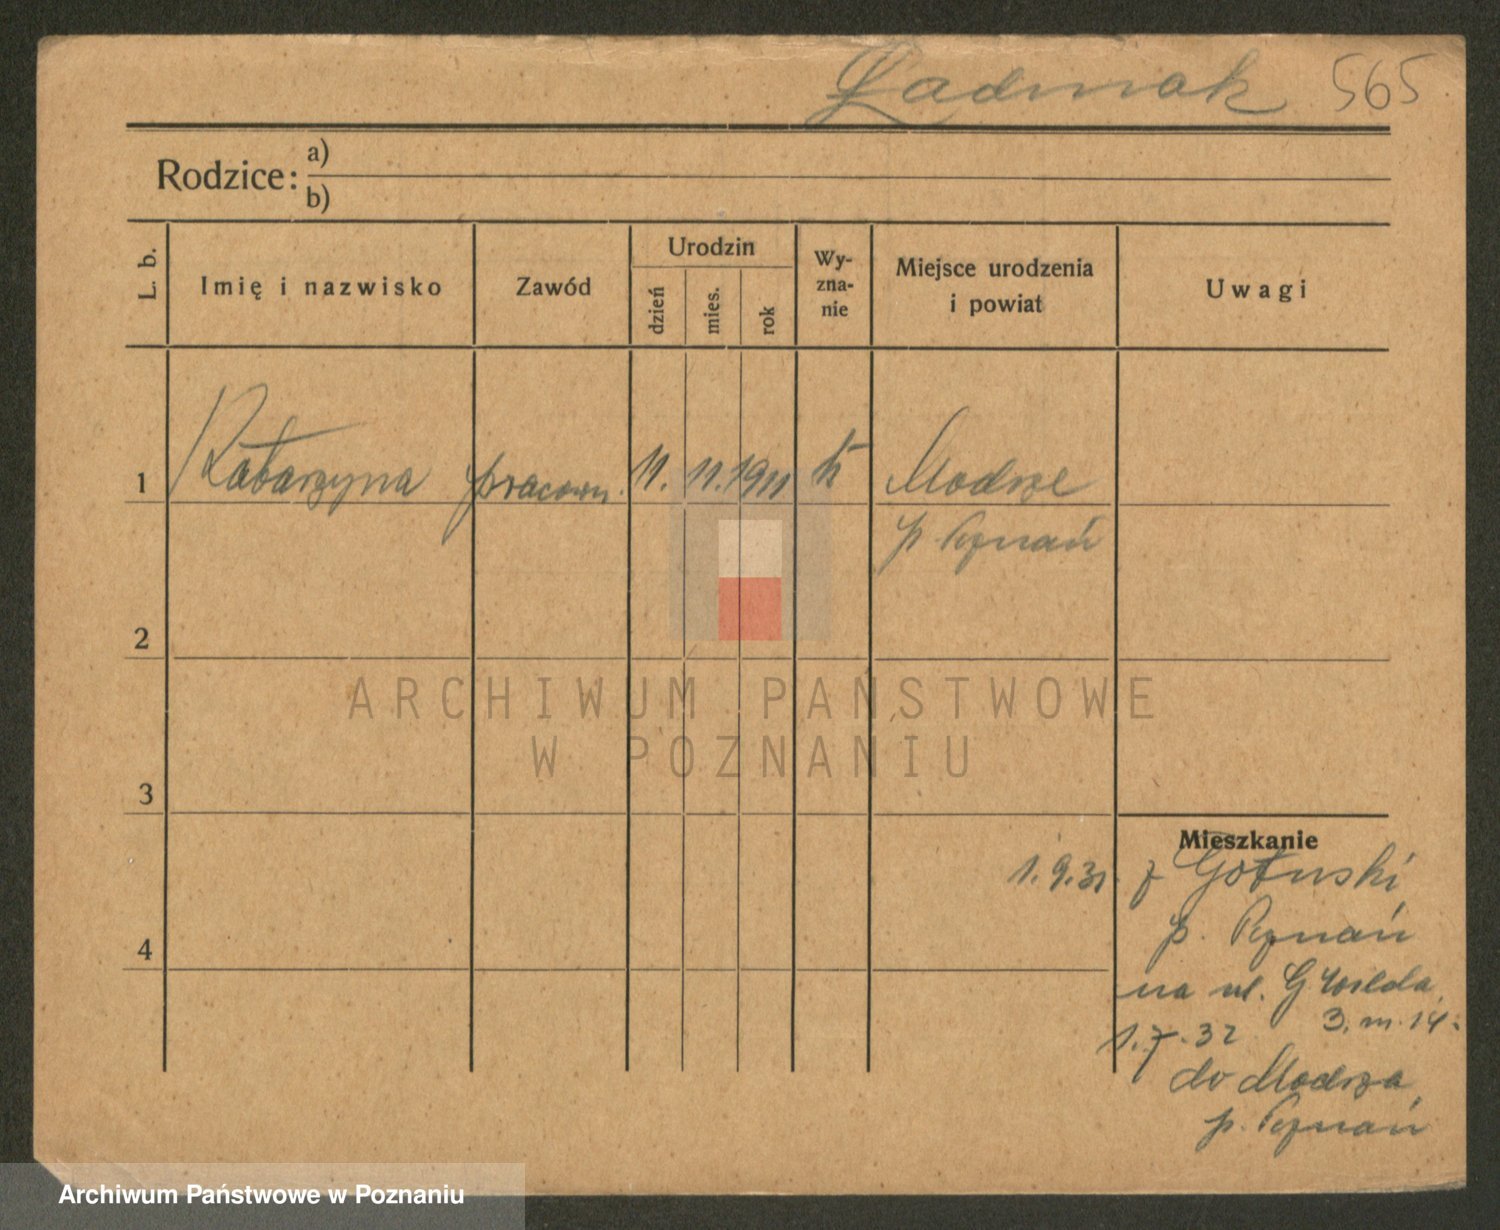 Ładniak 565
Rodzice: a)
b)
L. b.
Imię i nazwisko
Zawód
Urodzin
dzień
mies.
rok
Wy-
zna-
nie
Miejsce urodzenia
i powiat
Uwagi
1 Katarzyna pracown. 11. 11. 1911 k Modrze
p Poznań
2
ARCHIWUM PAŃSTWOWE
W POZNANIU
3
Mieszkanie
1.9.31. z Gołuski
p. Poznań
4
na ul. G Wilda
3. m. 14.
1.7.32
do Modrza
p. Poznań
Archiwum Państwowe w Poznaniu